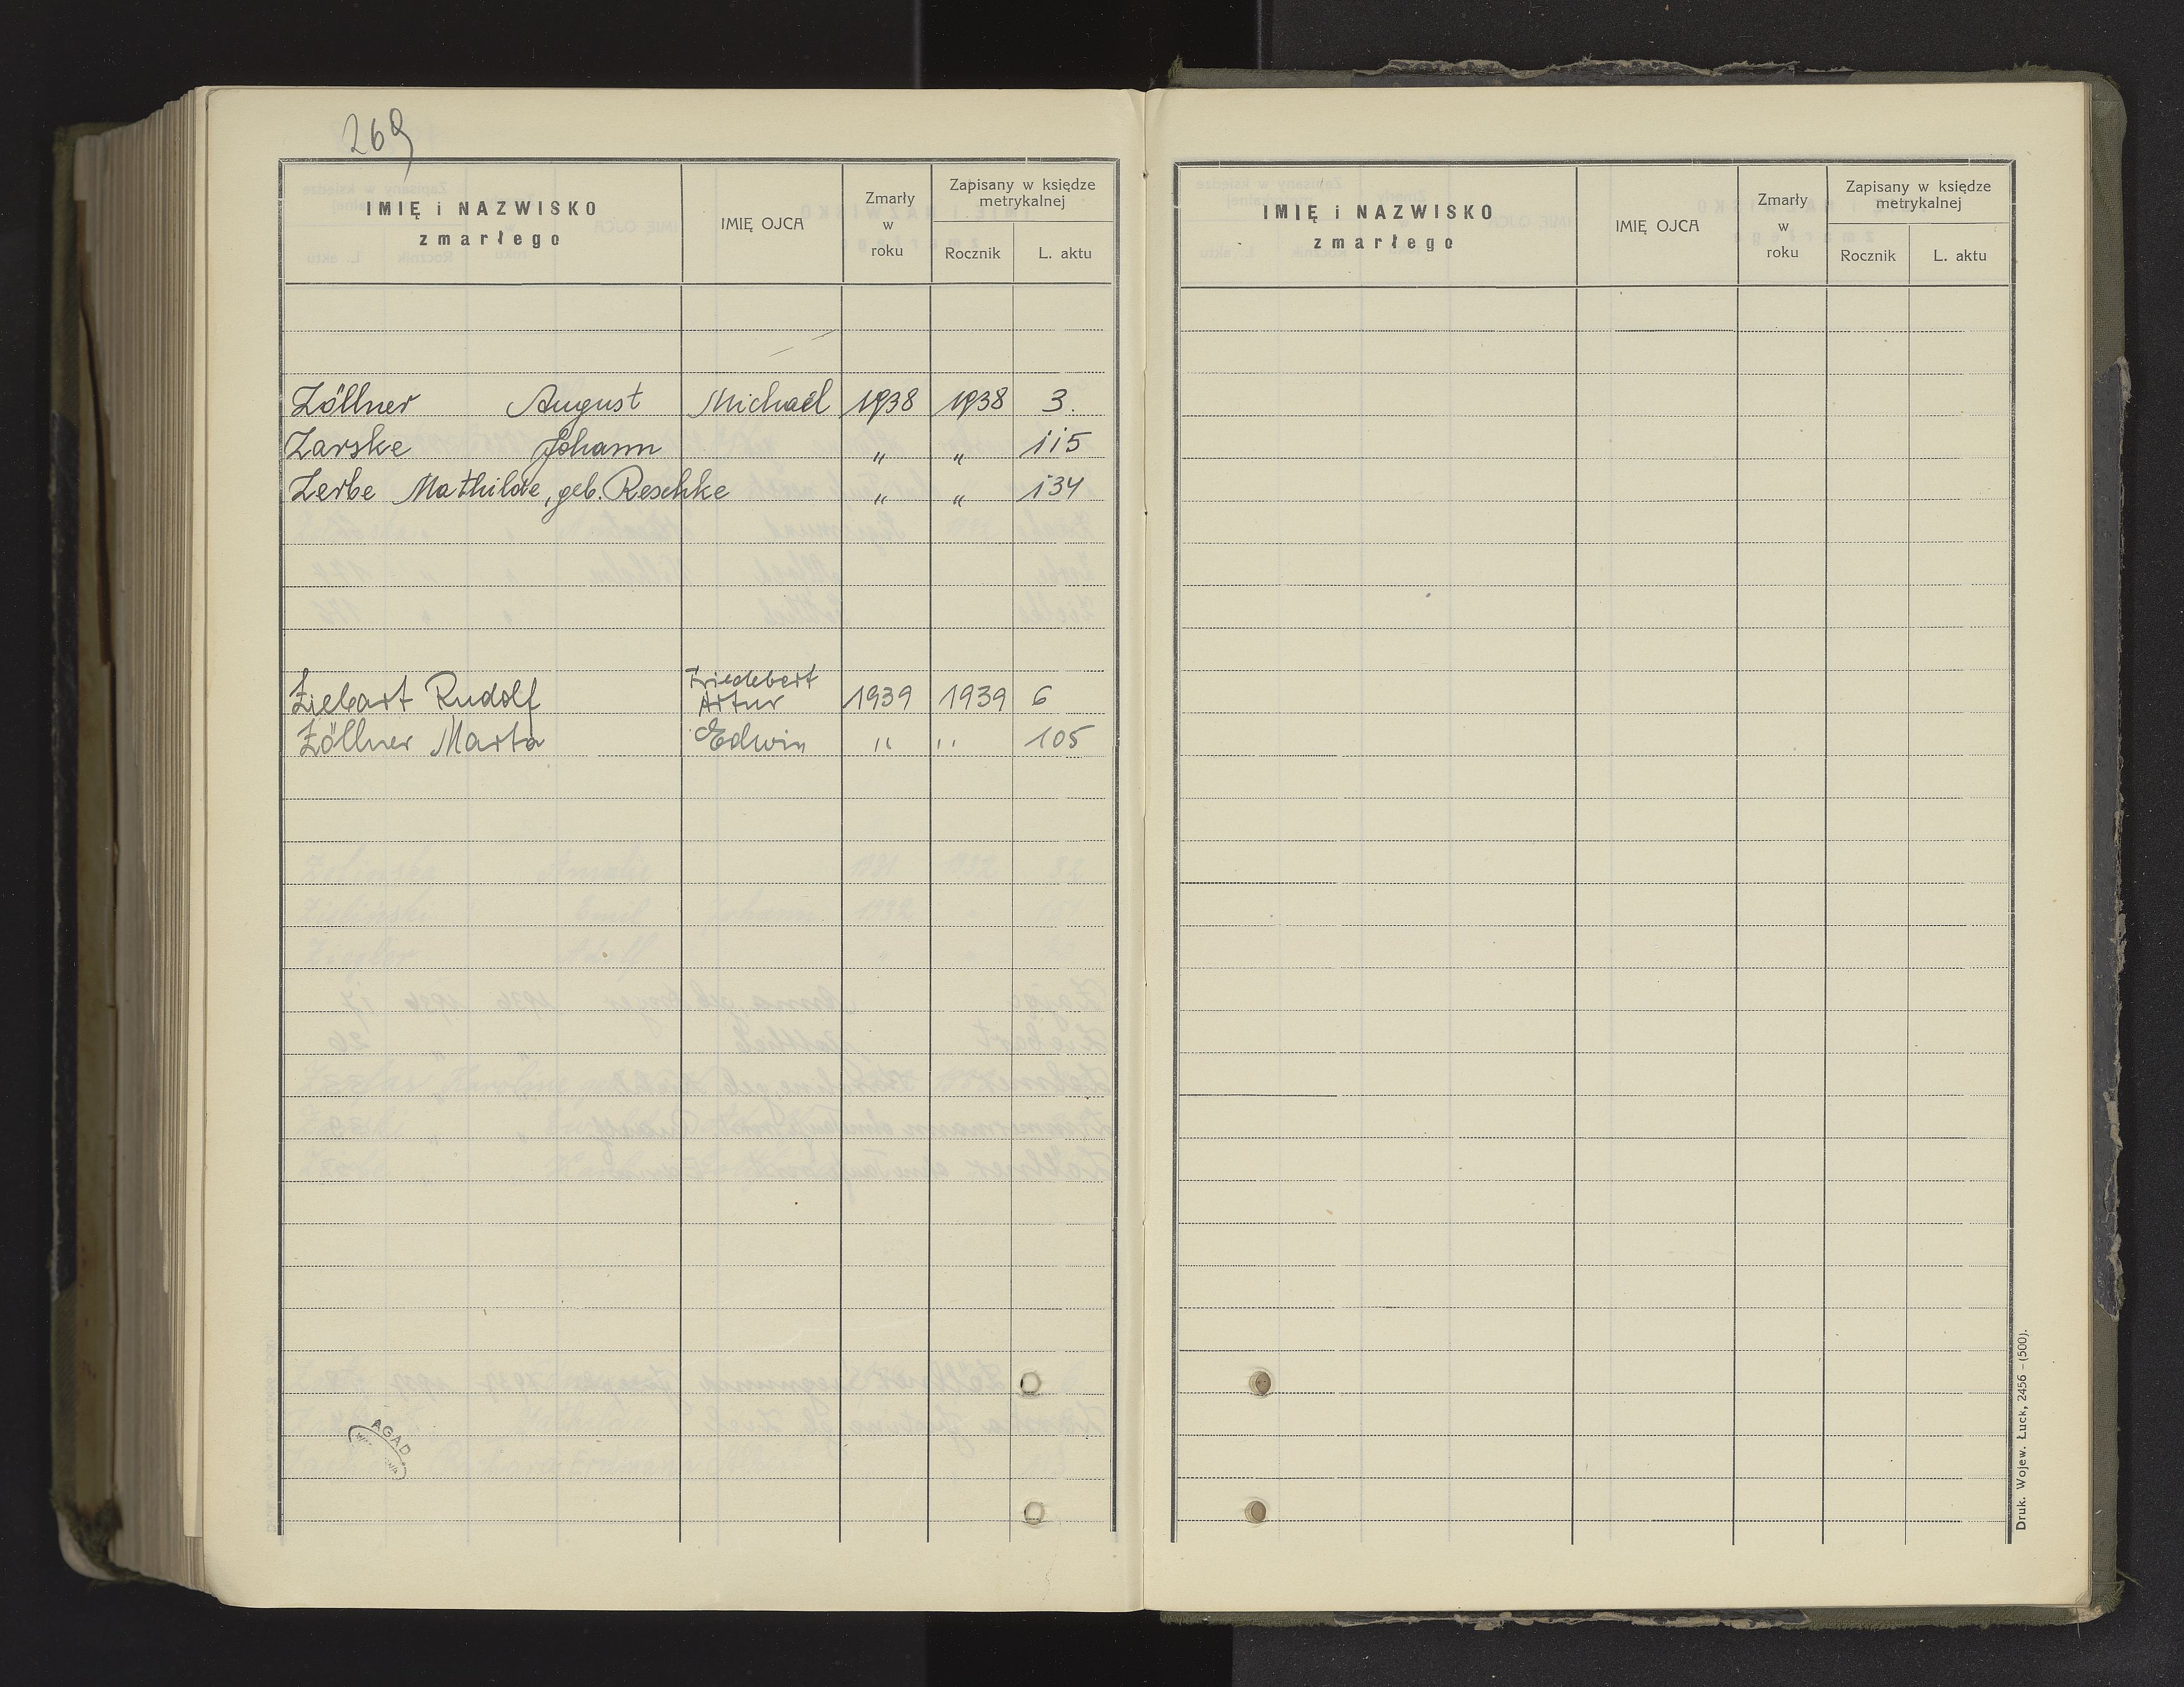 269
IMIĘ i NAZWISKO
zmarłego
IMIĘ OJCA
Zmarły
w
roku
Zapisany w księdze
metrykalnej
Rocznik
L. aktu
Zöllner August Michael 1938 1938 3.
Zarske Johann " " 115
Zerbe Mathilde, geb. Reschke " " 134
Friedebert
Ziebart Rudolf Artur 1939 1939 6
Zöllner Marta Edwin " " 105
AGAD
IMIĘ i NAZWISKO
zmarłego
IMIĘ OJCA
Zmarły
w
roku
Zapisany w księdze
metrykalnej
Rocznik
L. aktu
Druk. Wojew. Łuck, 2456 – (500).